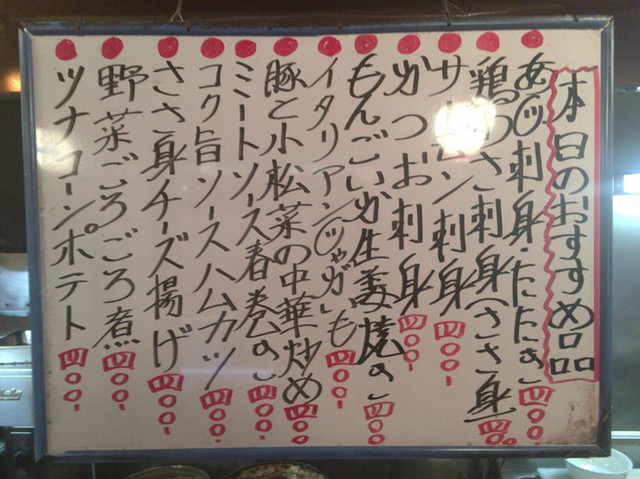 本日のおすすめ品
あじ刺身・たたき 四〇〇-
鶏わさ刺身(ささ身) 四〇〇-
サーモン刺身 四〇〇-
かつお刺身 四〇〇-
もんごいか生姜焼き 四〇〇-
イタリアンじゃがいも 四〇〇-
豚と小松菜の中華炒め 四〇〇-
ミートソース春巻き 四〇〇-
コク旨ソースハムカツ 四〇〇-
ささ身チーズ揚げ 四〇〇-
野菜ごろごろ煮 四〇〇-
ツナコーンポテト 四〇〇-